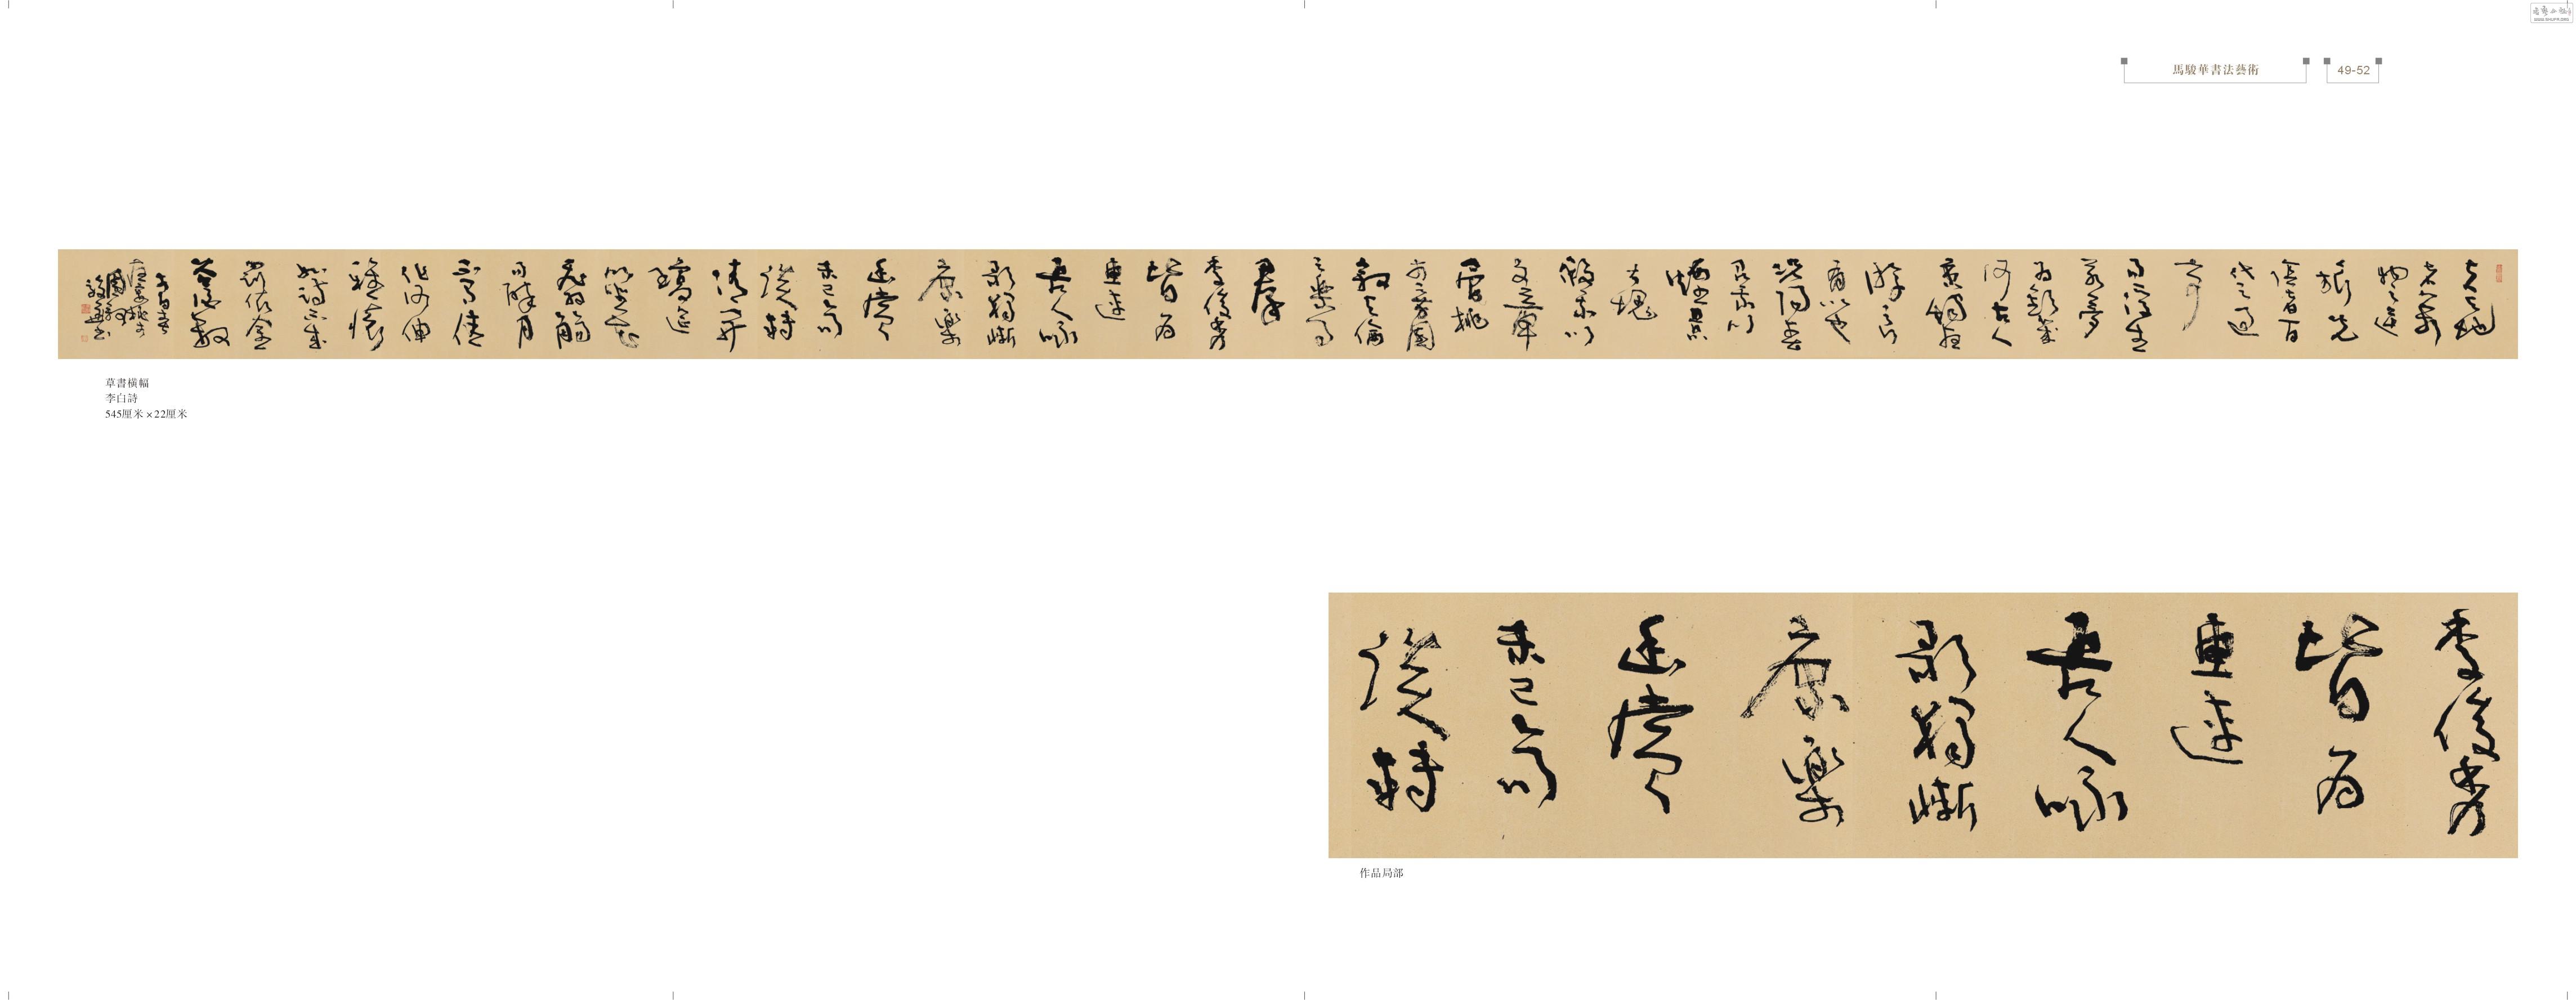 馬駿華書法藝術
49-52
夫天地
者萬
物之逆
旅光
陰者百
代之過
客
而浮生
若夢
為歡幾
何古人
秉燭夜
游良
有以也
況陽春
召我以
煙景
大塊
假我以
文章
會桃
李之芳園
敘天倫
之樂事
群
季俊秀
皆為
惠連
吾人詠
歌獨慚
康樂
幽賞
未已高
談轉
清開
瓊筵
以坐花
飛羽觴
而醉月
不有佳
作何伸
雅懷
如詩不成
罰依金
谷酒數
李白春
夜宴桃李
園序
駿華書
草書橫幅
李白詩
545厘米×22厘米
季俊秀
皆為
惠連
吾人詠
歌獨慚
康樂
幽賞
未已高
談轉
作品局部